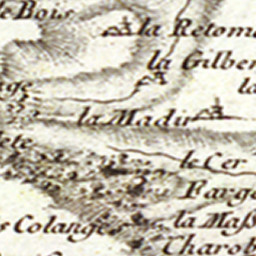 le Bois
la Retom
la Gilber
la
la Madir
le Cer
Farge
Colanges
la Maſs
Charob